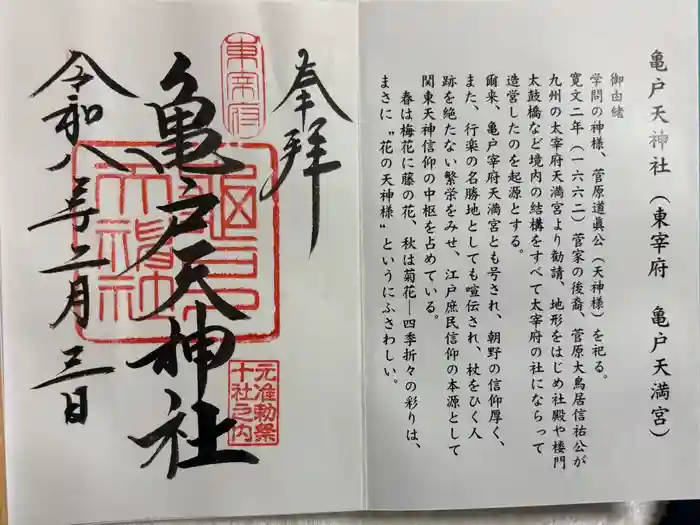 亀戸天神社（東宰府　亀戸天満宮）
御由緒
学問の神様、菅原道眞公（天神様）を祀る。
寛文二年（一六六二）菅家の後裔、菅原大鳥居信祐公が
九州の太宰府天満宮より勧請、地形をはじめ社殿や楼門
太鼓橋など境内の結構をすべて太宰府の社にならって
造営したのを起源とする。
爾来、亀戸宰府天満宮とも号され、朝野の信仰厚く、
また、行楽の名勝地としても喧伝され、杖をひく人
跡を絶たない繁栄をみせ、江戸庶民信仰の本源として
関東天神信仰の中枢を占めている。
春は梅花に藤の花、秋は菊花―四季折々の彩りは、
まさに〝花の天神様〟というにふさわしい。
奉拝
東宰府
亀戸天神社
亀戸天神社
元准勅祭
十社之内
令和八年二月三日